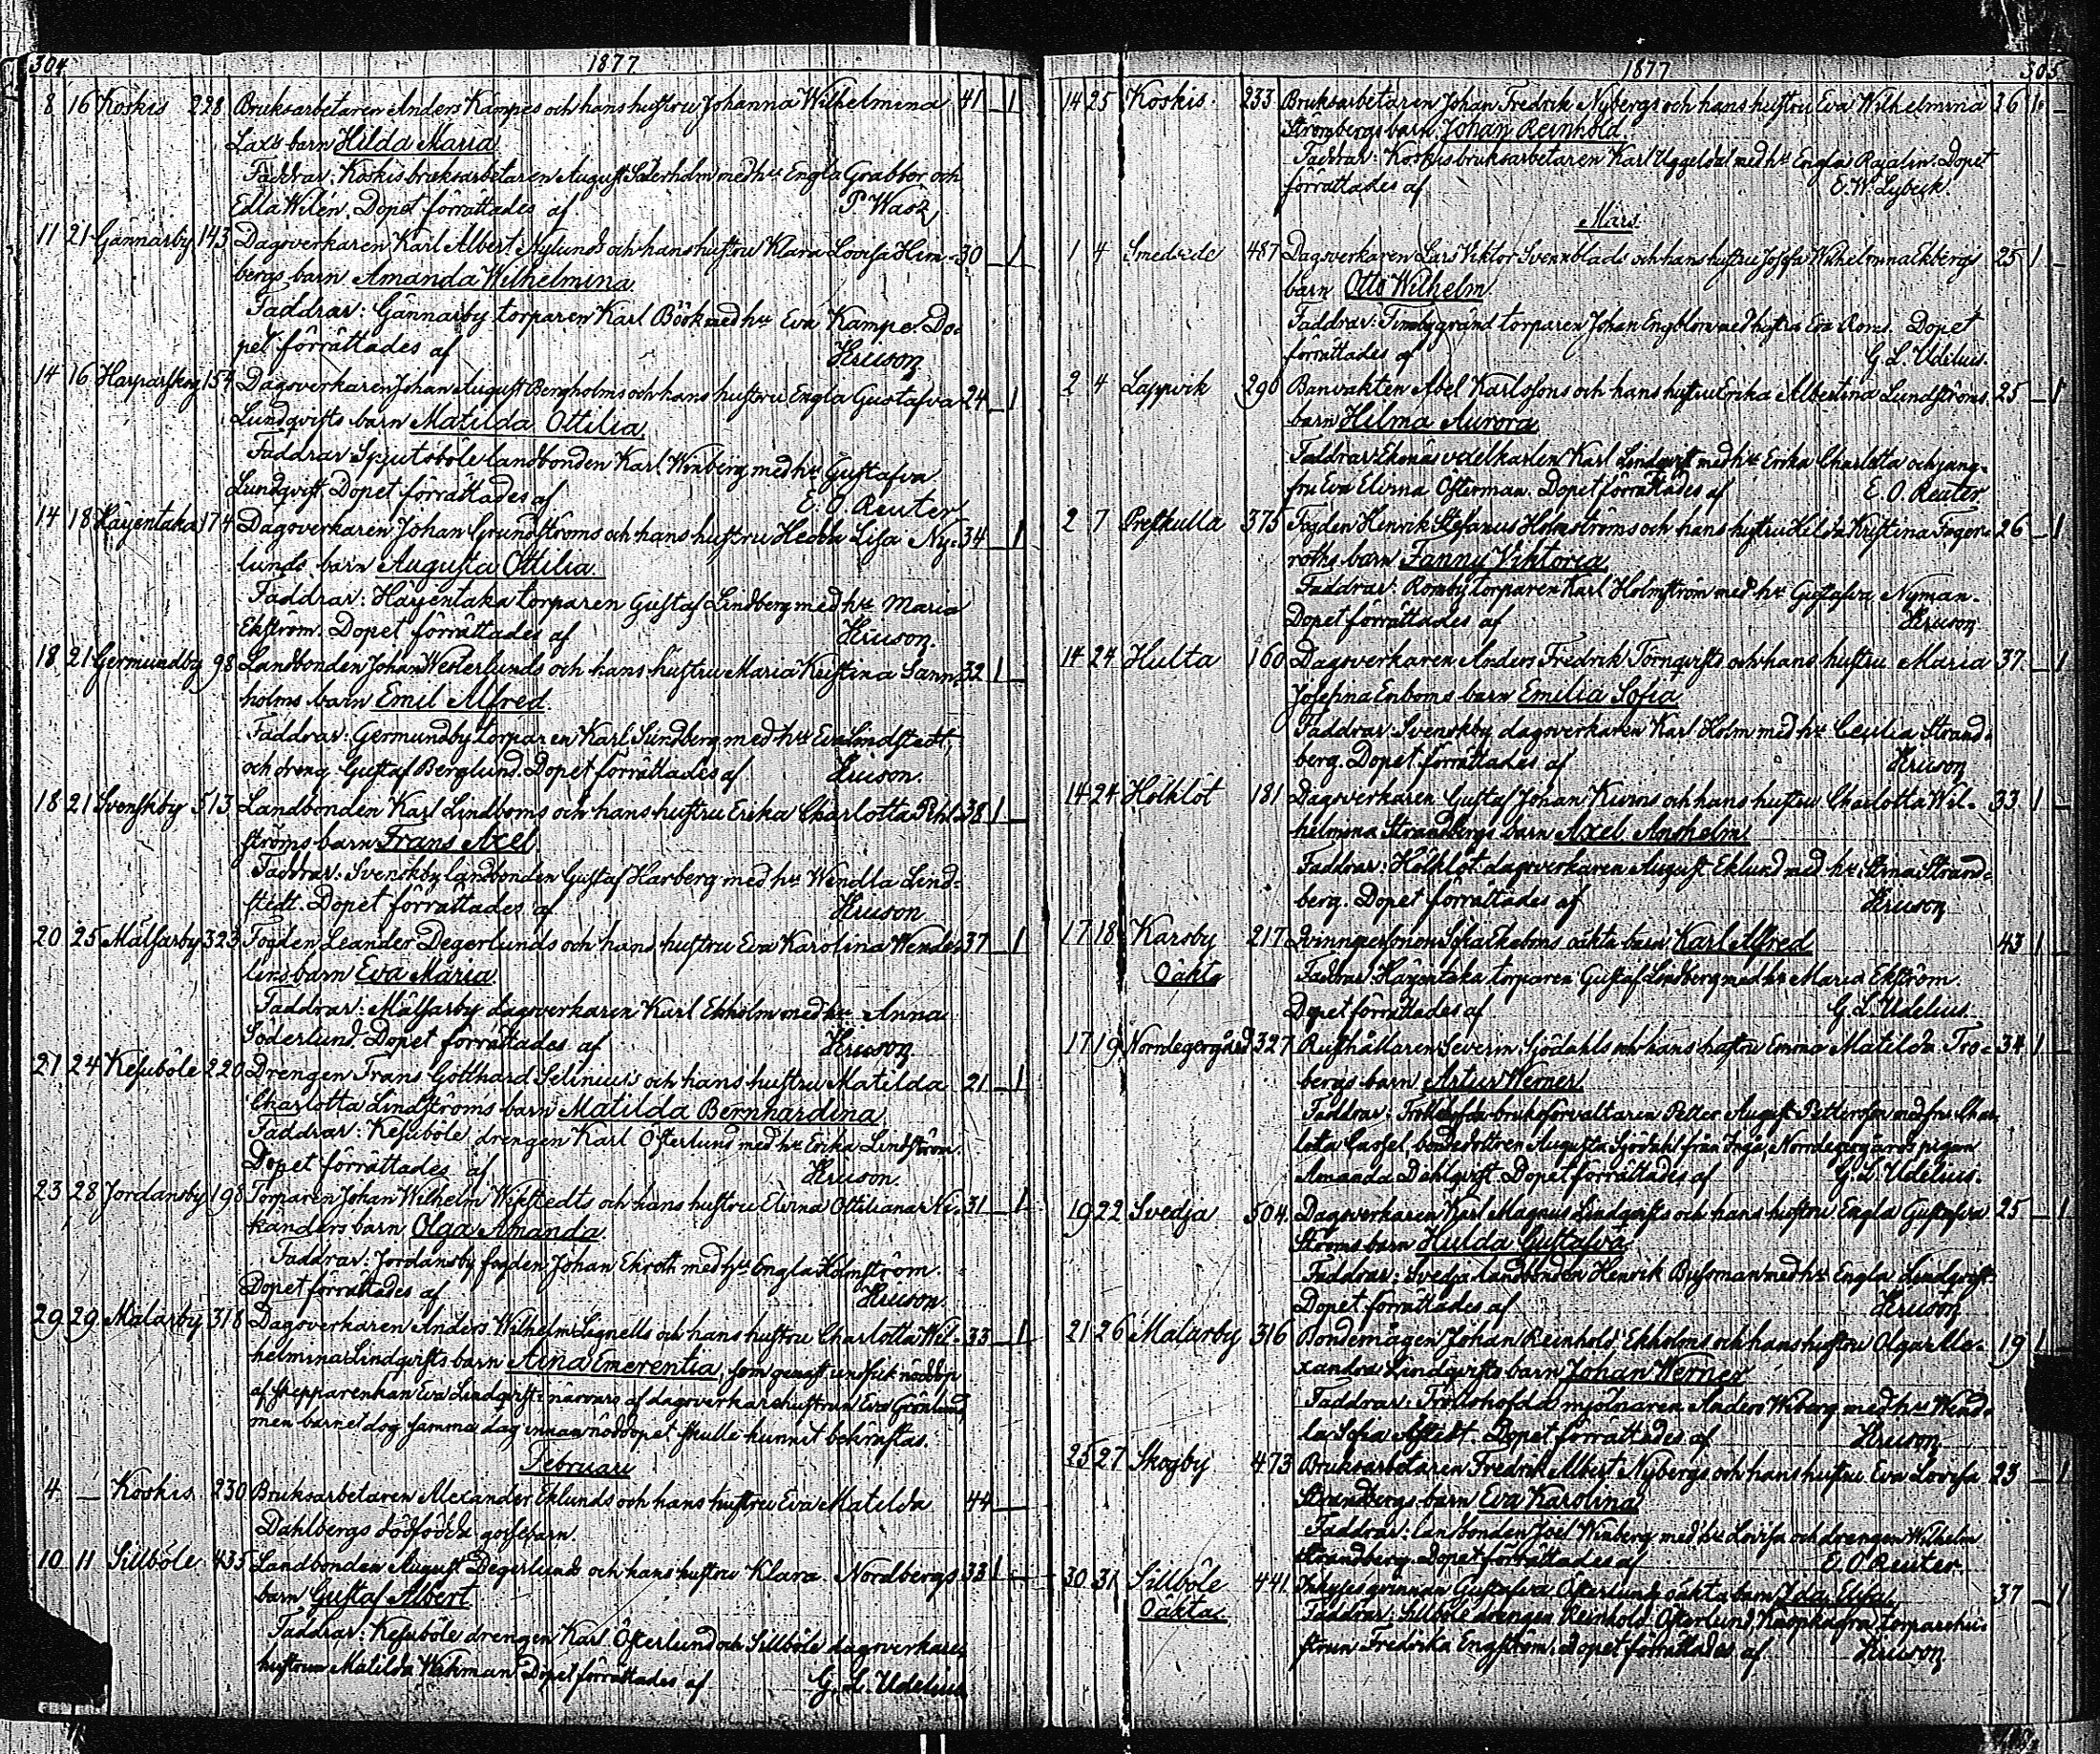 304 1877
8 16 Koskis 228 Bruksarbetaren Anders Kämpes och hans hustru Johanna Wilhelmina 41 1
Lax's barn Hilda Maria
Faddrar: Koskis bruksarbetaren August Söderholm med h:u Engla Grabbor och
Edla Wilén. Dopet förrättades af P Wasz
11 21 Gännarby 143 Dagsverkaren Karl Albert Nylunds och hans hustru Klara Lovisa Him- 30 1
bergs barn Amanda Wilhelmina
Faddrar: Gännarby torparen Karl Böök med h:u Eva Kämpe. Do-
pet förrättades af Hruson
14 16 Harparskog 154 Dagsverkaren Johan August Bergholms och hans hustru Engla Gustafva 24 1
Lundqvists barn Matilda Ottilia
Faddrar: Spjutsböle landbonden Karl Winberg med h:u Gustafva
Lundqvist. Dopet förrättades af E. O. Reuter
14 18 Häyentaka 174 Dagsverkaren Johan Grundströms och hans hustru Hedda Lisa Ny- 34 1
lunds barn Augusta Ottilia
Faddrar: Häyentaka torparen Gustaf Lindberg med h:u Maria
Ekström. Dopet förrättades af Hruson.
18 21 Germundby 98 Landbonden Johan Westerlunds och hans hustru Maria Kristina Sann- 32 1
holms barn Emil Alfred.
Faddrar: Germundby torparen Karl Sundberg med h:u Eva Lindstedt,
och dreng Gustaf Berglund. Dopet förrättades af Hruson.
18 21 Svenskby 513 Landbonden Karl Lindboms och hans hustru Erika Charlotta Pihl- 38 1
ströms barn Frans Axel
Faddrar: Svenskby landbonden Gustaf Harberg med h:u Wendla Lind-
stedt. Dopet förrättades af Hruson
20 25 Mälsarby 323 Fogden Leander Degerlunds och hans hustru Eva Karolina Wende- 37 1
lins barn Eva Maria
Faddrar: Mälsarby dagsverkaren Karl Ekholm med h:u Anna
Söderlund. Dopet förrättades af Hruson
21 24 Kesuböle 220 Drengen Frans Gotthard Selinius's och hans hustru Matilda 21 1
Charlotta Lindströms barn Matilda Bernhardina
Faddrar: Kesuböle drengen Karl Österlund med h:u Erika Lindström.
Dopet förrättades af Hruson.
23 28 Jordansby 198 Torparen Johan Wilhelm Wikstedts och hans hustru Elvina Ottiliana Ni- 31 1
kanders barn Olga Amanda
Faddrar: Jordansby fogden Johan Ekroth med h:u Engla Holmström.
Dopet förrättades af Hruson.
29 29 Malarby 318 Dagsverkaren Anders Wilhelm Lignells och hans hustru Charlotta Wil- 33 1
helmina Lindqvists barn Aina Emerentia, som genast undfick nöddop
af skepparenkan Eva Lindqvist i närvaro af dagsverkarehustrun Eva Grönlund,
men barnet dog samma dag innan nöddopet skulle hunnit bekräftas.
Februari
4 — Koskis 230 Bruksarbetaren Alexander Eklunds och hans hustru Eva Matilda 44
Dahlbergs dödfödda gossebarn.
10 11 Sillböle 435 Landbonden August Degerlunds och hans hustru Klara Nordbergs 33 1
barn Gustaf Albert
Faddrar: Kesuböle drengen Karl Österlund och Sillböle dagsverkare-
hustrun Matilda Wikman Dopet förrättades af G. L. Udelius
1877 305
14 25 Koskis 233 Bruksarbetaren Johan Fredrik Nybergs och hans hustru Eva Wilhelmina 36 1
Strömbergs barn Johan Reinhold.
Faddrar: Koskis bruksarbetaren Karl Uggeldal med h:u Engla Rajalin. Dopet
förrättades af E. W. Lybeck.
Mars.
1 4 Smedsede 487 Dagsverkaren Lars Viktor Svennblads och hans hustru Josefa Wilhelmina Ekbergs 25 1
barn Otto Wilhelm
Faddrar: torparen Johan Engblom med hustru Eva Roms. Dopet
förrättades af G. L. Udelius.
2 4 Lappvik 290 Banvakten Abel Karlssons och hans hustru Erika Albertina Lundströms 25 1
barn Hilma Aurora
Faddrar: Ekenäs Karl Lindqvist med h:u Erika Charlotta och jung-
fru Eva Elvina Österman. Dopet förrättades af E. O. Reuter
2 7 Prestkulla 375 Fogden Henrik Stefanus Holmströms och hans hustru Hilda Kristina Fager- 26 1
roths barn Fanny Viktoria
Faddrar: Romby torparen Karl Holmström med h:u Gustafva Nyman.
Dopet förrättades af Hruson
14 24 Hulta 160 Dagsverkaren Anders Fredrik Törnqvists och hans hustru Maria 37 1
Josefina Enboms barn Emilia Sofia
Faddrar: Svenskby dagsverkaren Karl Holm med h:u Cecilia Strand-
berg. Dopet förrättades af Hruson
14 24 Hölklöt 181 Dagsverkaren Gustaf Johan Kivros och hans hustru Charlotta Wil- 33 1
helmina Strandbergs barn Axel Anshelm
Faddrar: Hölklöt dagsverkaren August Eklund med h:u Stina Strand-
berg. Dopet förrättades af Hruson
17 18 Karsby 217 Qvinnspersonen Sofia Ekeboms oäkta barn Karl Alfred 43 1
Oäkta Faddrar: Häyentaka torparen Gustaf Lindberg med h:u Maria Ekström.
Dopet förrättades af G. L. Udelius.
17 19 Norrdegergård 327 Rusthållaren Severin Sjödahls och hans hustru Emma Matilda Fro- 34 1
bergs barn Artur Werner
Faddrar: bruksförvaltaren Petter August Pettersson med fru Char-
lotta Cassel, bondedottren Augusta Sjödahl från Ingå, Norrdegergårds pigan
Amanda Dahlqvist. Dopet förrättades af G. L. Udelius.
19 22 Svedja 504. Dagsverkaren Karl Magnus Lindqvists och hans hustru Engla Gustafva 25 1
Ströms barn Hulda Gustafva
Faddrar: Svedja landbonden Henrik Bussman med h:u Engla Lindqvist.
Dopet förrättades af Hruson
21 26 Malarby 316 Bondemågen Johan Reinhold Ekholms och hans hustru Olga Ale- 19 1
xandra Lindqvists barn Johan Werner
Faddrar: mjölnaren Anders Wiberg med h:u Wend-
la Sofia Dopet förrättades af Hruson
25 27 Skogby 473 Bruksarbetaren Fredrik Albert Nybergs och hans hustru Eva Lovisa 23 1
Strandbergs barn Eva Karolina
Faddrar: landbonden Joel Winberg med h:u Lovisa och drengen Wilhelm
Strandberg. Dopet förrättades af E. O. Reuter.
30 31 Sillböle 441. Inhyses qvinnan Gustafva Österlunds oäkta barn Ida Elba. 37 1
Oäkta Faddrar: Sillböle drengen Reinhold Österlund, torparehu-
strun Fredrika Engström. Dopet förrättades af Hruson